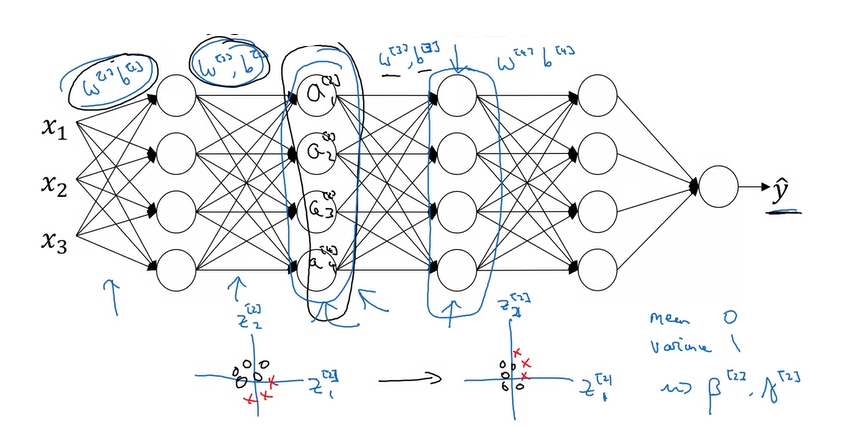 w[1] b[1]
w[2], b[2]
w[3], b[3]
w[4] b[4]
x₁
x₂
x₃
a₁[2]
a₂[2]
a₃[2]
a₄[2]
ŷ
z₂[2]
z₁[2]
z₂[2]
z₁[2]
mean 0
variance 1
β[2], γ[2]